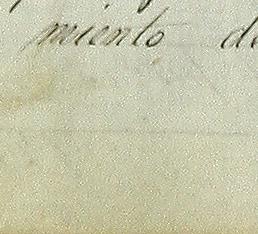 miento de